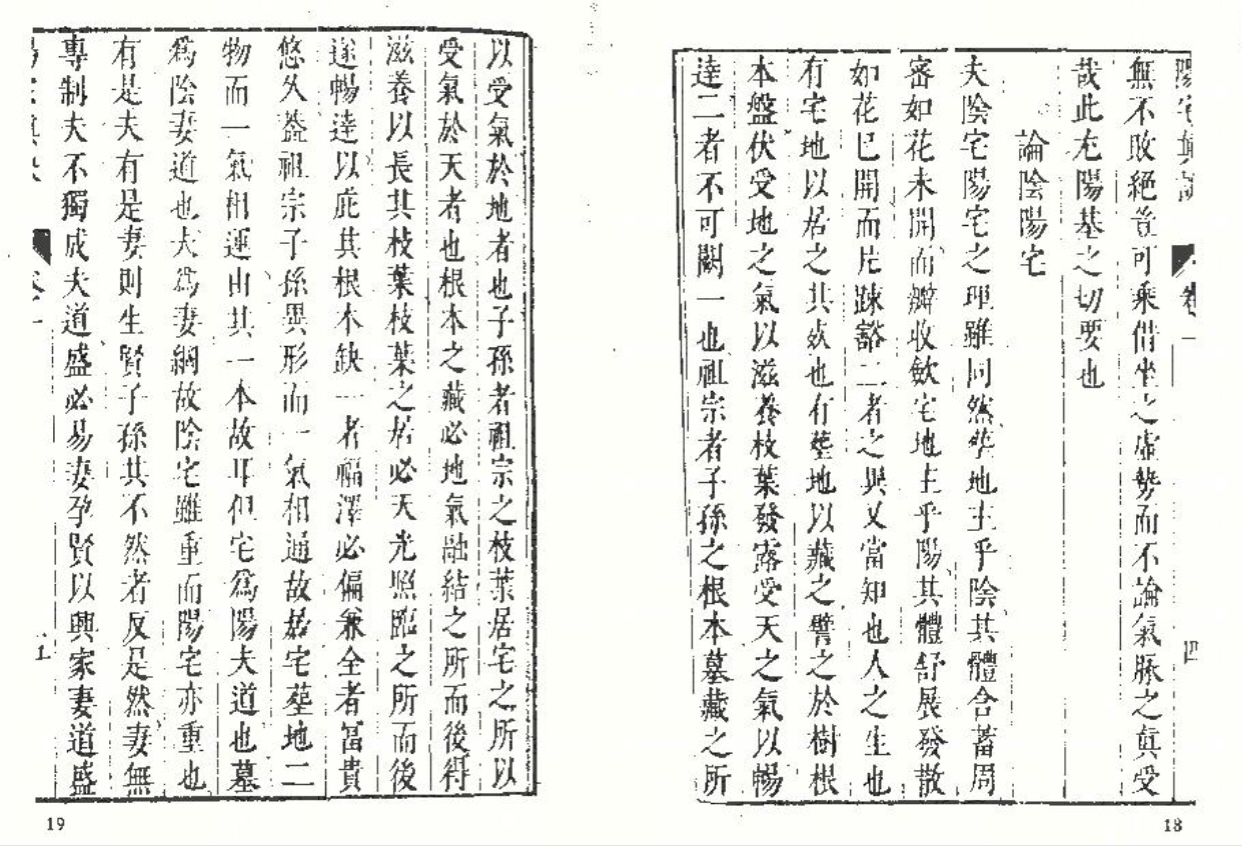 陽宅真訣
卷一
四
無不敗絕豈可乘借坐之虛勢而不論氣脉之真受
哉此尤陽基之切要也
論陰陽宅
夫陰宅陽宅之理雖同然塋地主乎陰其體含蓄周
密如花未開而瓣收歛宅地主乎陽其體舒展發散
如花已開而片踈豁二者之異又當知也人之生也
有宅地以居之其歿也有塟地以藏之譬之於樹根
本盤伏受地之氣以滋養枝葉發露受天之氣以暢
達二者不可闕一也祖宗者子孫之根本墓藏之所
18
以受氣於地者也子孫者祖宗之枝葉居宅之所以
受氣於天者也根本之藏必地氣融結之所而後得
滋養以長其枝葉枝葉之居必天光照臨之所而後
遂暢達以庇其根本缺一者福澤必偏兼全者富貴
悠久葢祖宗子孫異形而一氣相通故居宅塟地二
物而一氣相運由其一本故耳但宅為陽夫道也墓
為陰妻道也夫為妻綱故陰宅雖重而陽宅亦重也
有是夫有是妻則生賢子孫其不然者反是然妻無
專制夫不獨成夫道盛必易妻孕賢以興家妻道盛
卷一
五
19